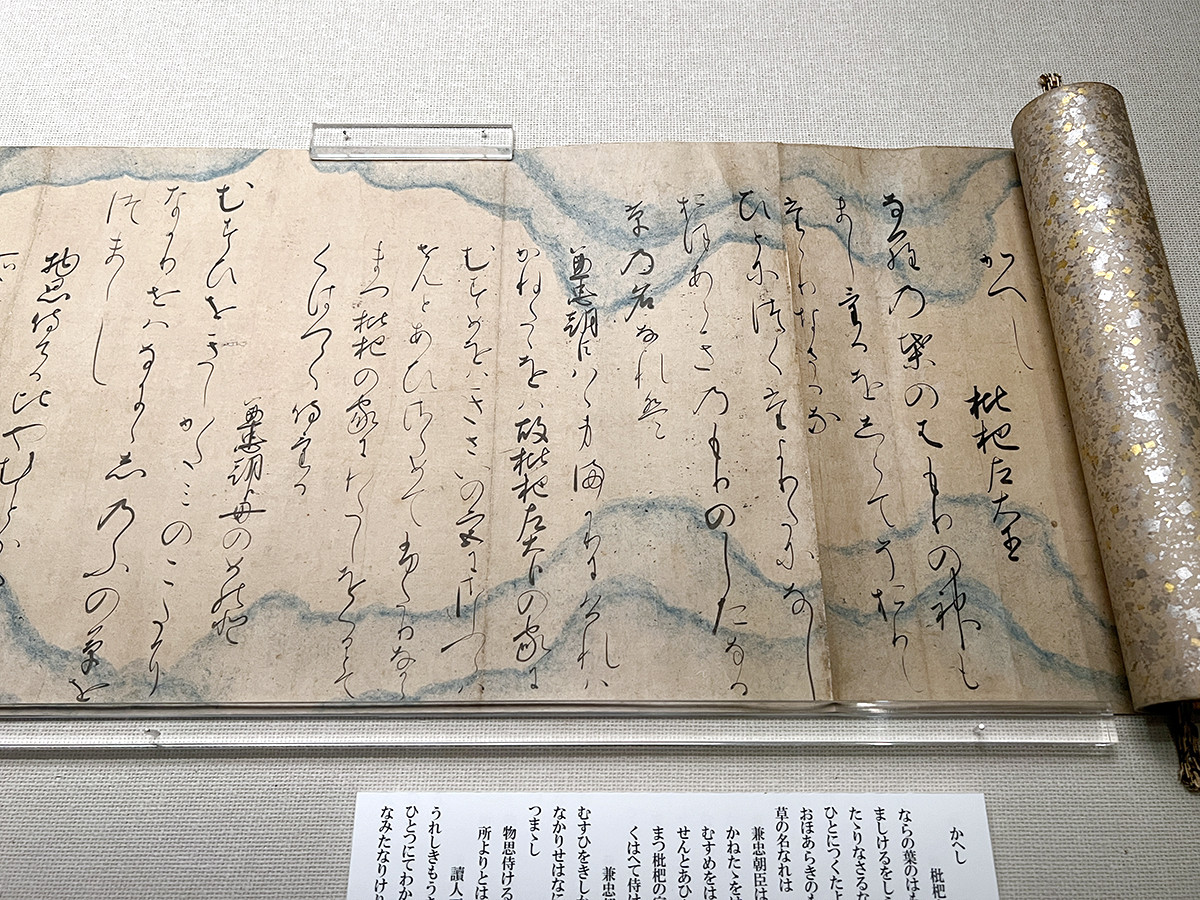 かへし
枇杷左大臣
ならの葉のはもりの神も
ましけるをしらてそおりし
たゝりなさるな
ひとにつくたよりたになし
おほあらきのもりのしたなる
草の名なれは
兼忠朝臣はゝ身まかりにけれは
かねたゝをは故枇杷左大臣の家に
むすめをはきさいの宮にさふらは
せんとあひさためてふたりなから
まつ枇杷の家にわたしをくるとて
くはへて侍ける
兼忠朝臣母のめのと
むすひをきしかたみのこたに
なかりせはなにゝしのふの草を
つまゝし
物思侍ける比やむこと
かへし 枇杷
ならの葉のはも
ましけるをし
たゝりなさるな
ひとにつくたよ
おほあらきのも
草の名なれは
兼忠朝臣は
かねたゝをは
むすめをは
せんとあひ
まつ枇杷の
くはへて侍
兼忠
むすひをきし
なかりせはなに
つまゝし
物思侍ける
所よりとは
讀人
うれしきもう
ひとつにてわか
なみたなりけ